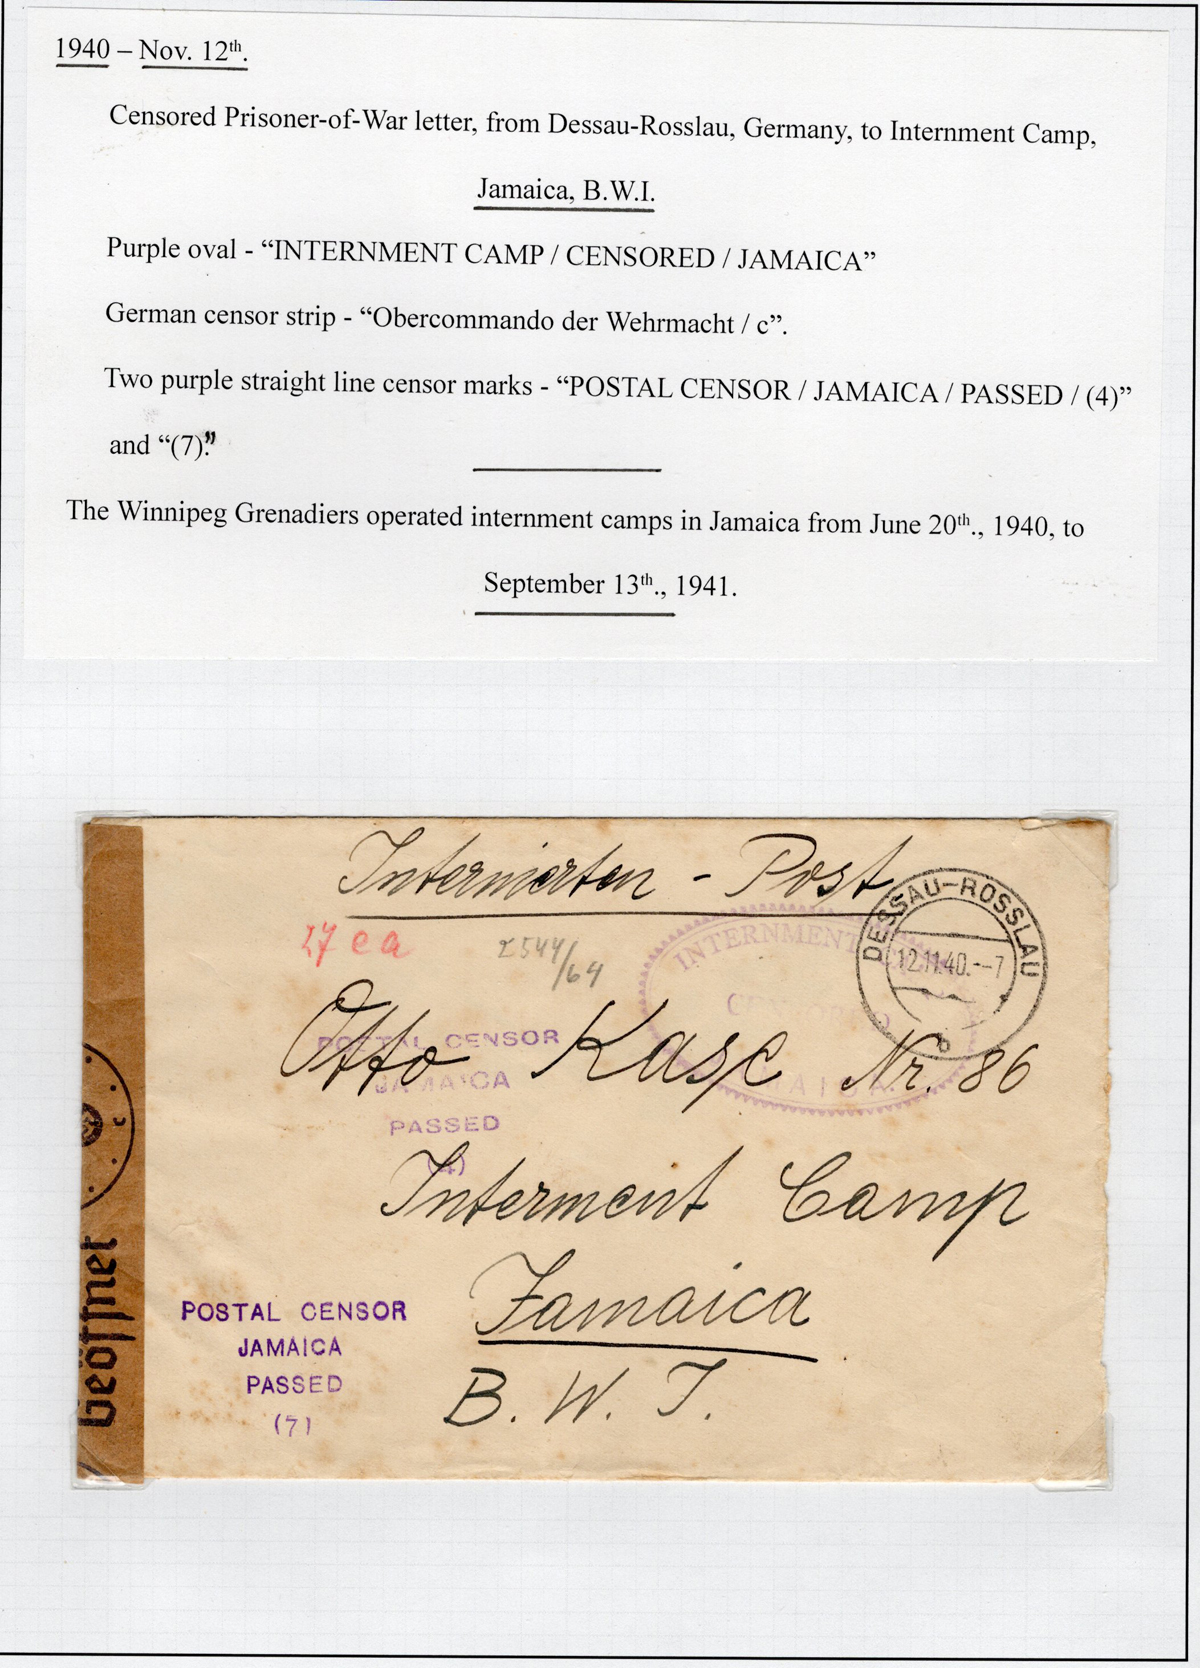 1940 – Nov. 12th.
Censored Prisoner-of-War letter, from Dessau-Rosslau, Germany, to Internment Camp,
Jamaica, B.W.I.
Purple oval - “INTERNMENT CAMP / CENSORED / JAMAICA”
German censor strip - “Obercommando der Wehrmacht / c”.
Two purple straight line censor marks - “POSTAL CENSOR / JAMAICA / PASSED / (4)”
and “(7)”.
The Winnipeg Grenadiers operated internment camps in Jamaica from June 20th., 1940, to
September 13th., 1941.
Internierten - Post
DESSAU-ROSSLAU
12.11.40.--7
b
INTERNMENT
27 e a
2544/64
Otto Kase Nr. 86
POSTAL CENSOR
JAMAICA
PASSED
(4)
Interment Camp
Jamaica
B. W. I.
POSTAL CENSOR
JAMAICA
PASSED
(7)
c
Geöffnet